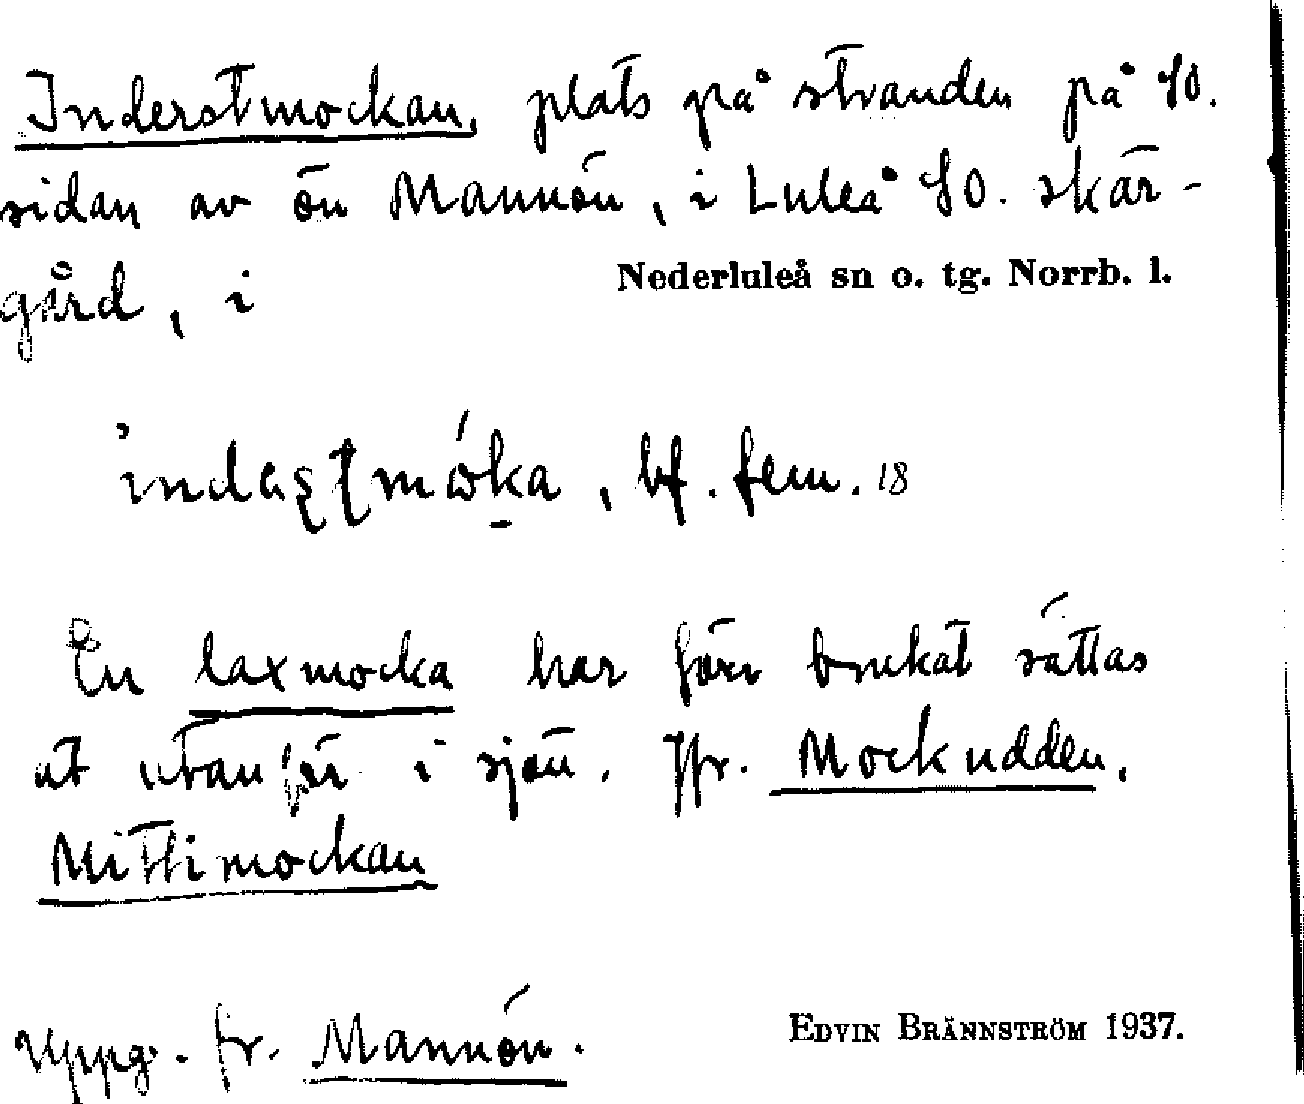 Inderstmockan, plats på stranden på SO.
sidan av ön Mannön, i Luleå SO. skär-
gård, i Nederluleå sn o. tg. Norrb. l.
bf. fem. 18
En laxmocka har förr brukat sättas
ut utanför i sjön. Jfr. Mockudden,
Mittimockan
Uppg. fr. Mannön.
EDVIN BRÄNNSTRÖM 1937.